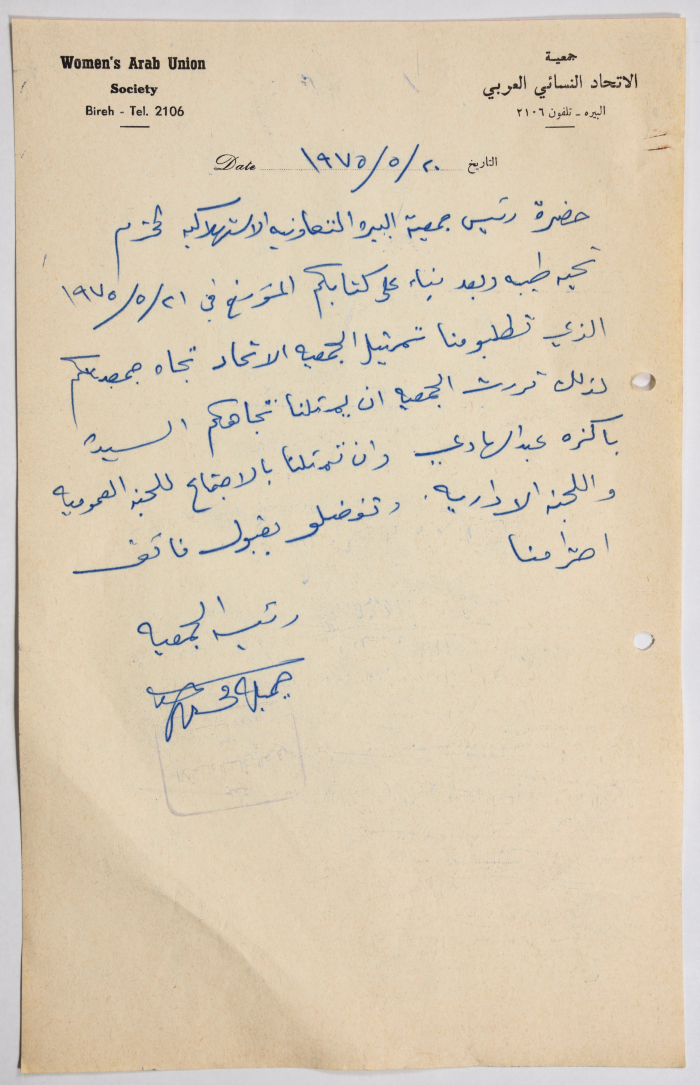 Women's Arab Union
Society
Bireh - Tel. 2106
جمعية
الاتحاد النسائي العربي
البيره - تلفون ٢١٠٦
Date ١٩٧٥/٥/٢٠ التاريخ
حضرة رئيس جمعية البيره التعاونيه الاستهلاكيه المحترم
تحيه طيبه وبعد بناء على كتابكم المؤرخ في ١٩٧٥/٥/٢١
الذي تطلبو منا تمثيل الجمعيه الاتحاد تجاه جمعيتكم
لذلك قررت الجمعيه ان يمثلنا تجاهكم السيدة
باكزه عبد الهادي وان تمثلنا بالاجتماع للجنه العموميه
واللجنه الاداريه. وتفوضلو بقبول فائق
احترامنا
رئيسه الجمعيه